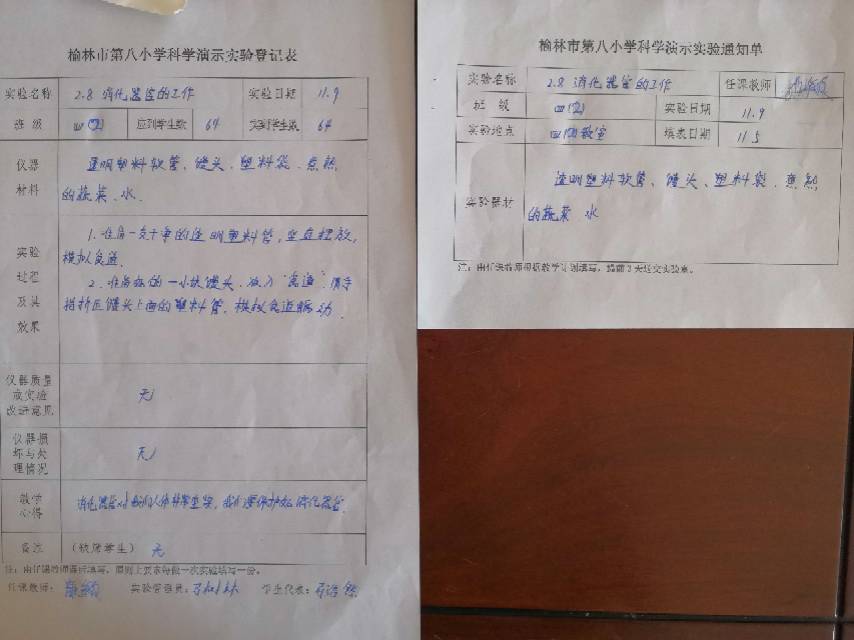 榆林市第八小学科学演示实验登记表
实验名称 2.8 消化器官的工作 实验日期 11.9
班 级 四 应到学生数 64 实到学生数 64
仪器 透明塑料软管、馒头、塑料袋、煮熟
材料 的蔬菜、水
实验 1. 准备一支干净的透明塑料管,竖直摆放,
过程 模拟食道
及其 2. 准备 的一小块馒头,放入“食道”,用手
效果 指挤压馒头上面的塑料管,模拟食道蠕动
仪器质量
或实验 无
改进意见
仪器损
坏与处 无
理情况
教学 消化器官对我们人体非常重要,我们要保护好消化器官
心得
备注 (缺席学生) 无
注:由任课教师课后填写,原则上要求每做一次实验填写一份。
任课教师: 实验管理员: 学生代表:
榆林市第八小学科学演示实验通知单
实验名称 2.8 消化器官的工作 任课教师
班 级 四 实验日期 11.9
实验地点 四 教室 填表日期 11.5
实验器材 透明塑料软管、馒头、塑料袋、煮熟
的蔬菜 水
注:由任课教师根据教学计划填写,提前3天送交实验室。